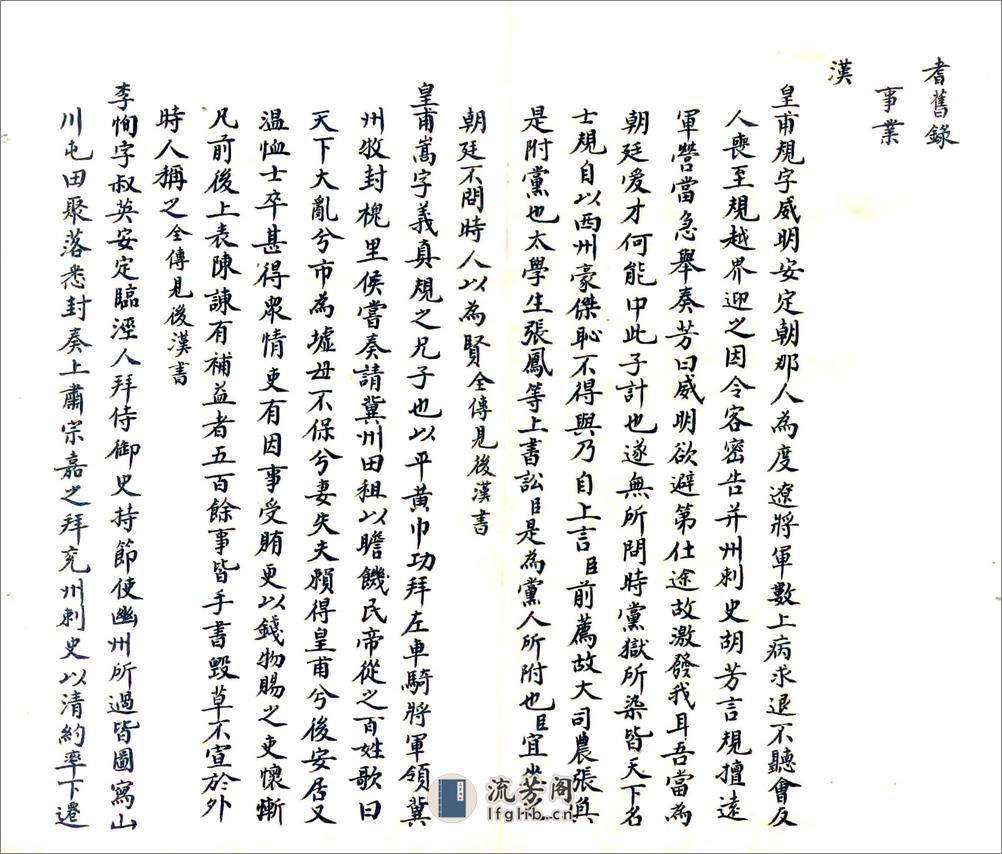 耆舊錄
事業
漢
皇甫規字威明安定朝那人為度遼將軍數上病求退不聽會友
人喪至規越界迎之因令客密告并州刺史胡芳言規擅遠
軍營當急舉奏芳曰威明欲避第仕途故激發我耳吾當為
朝廷爱才何能中此子計也遂無所問時黨獄所染皆天下名
士規自以西州豪傑恥不得與乃自上言臣前薦故大司農張奐
是附黨也太學生張鳳等上書訟臣是為黨人所附也臣宜坐之
朝廷不問時人以為賢全傳見後漢書
皇甫嵩字義真規之兄子也以平黃巾功拜左車騎將軍領冀
州牧封槐里侯嘗奏請冀州田租以贍饑民帝從之百姓歌曰
天下大亂兮市為墟母不保兮妻失夫賴得皇甫兮後安居又
温恤士卒甚得眾情吏有因事受賄更以錢物賜之吏懷慚
凡前後上表陳諫有補益者五百餘事皆手書毀草不宣於外
時人稱之全傳見後漢書
李恂字叔英安定臨涇人拜侍御史持節使幽州所過皆圖寫山
川屯田聚落悉封奏上肅宗嘉之拜兖州刺史以清約率下遷
流芳阁
lfglib.cn